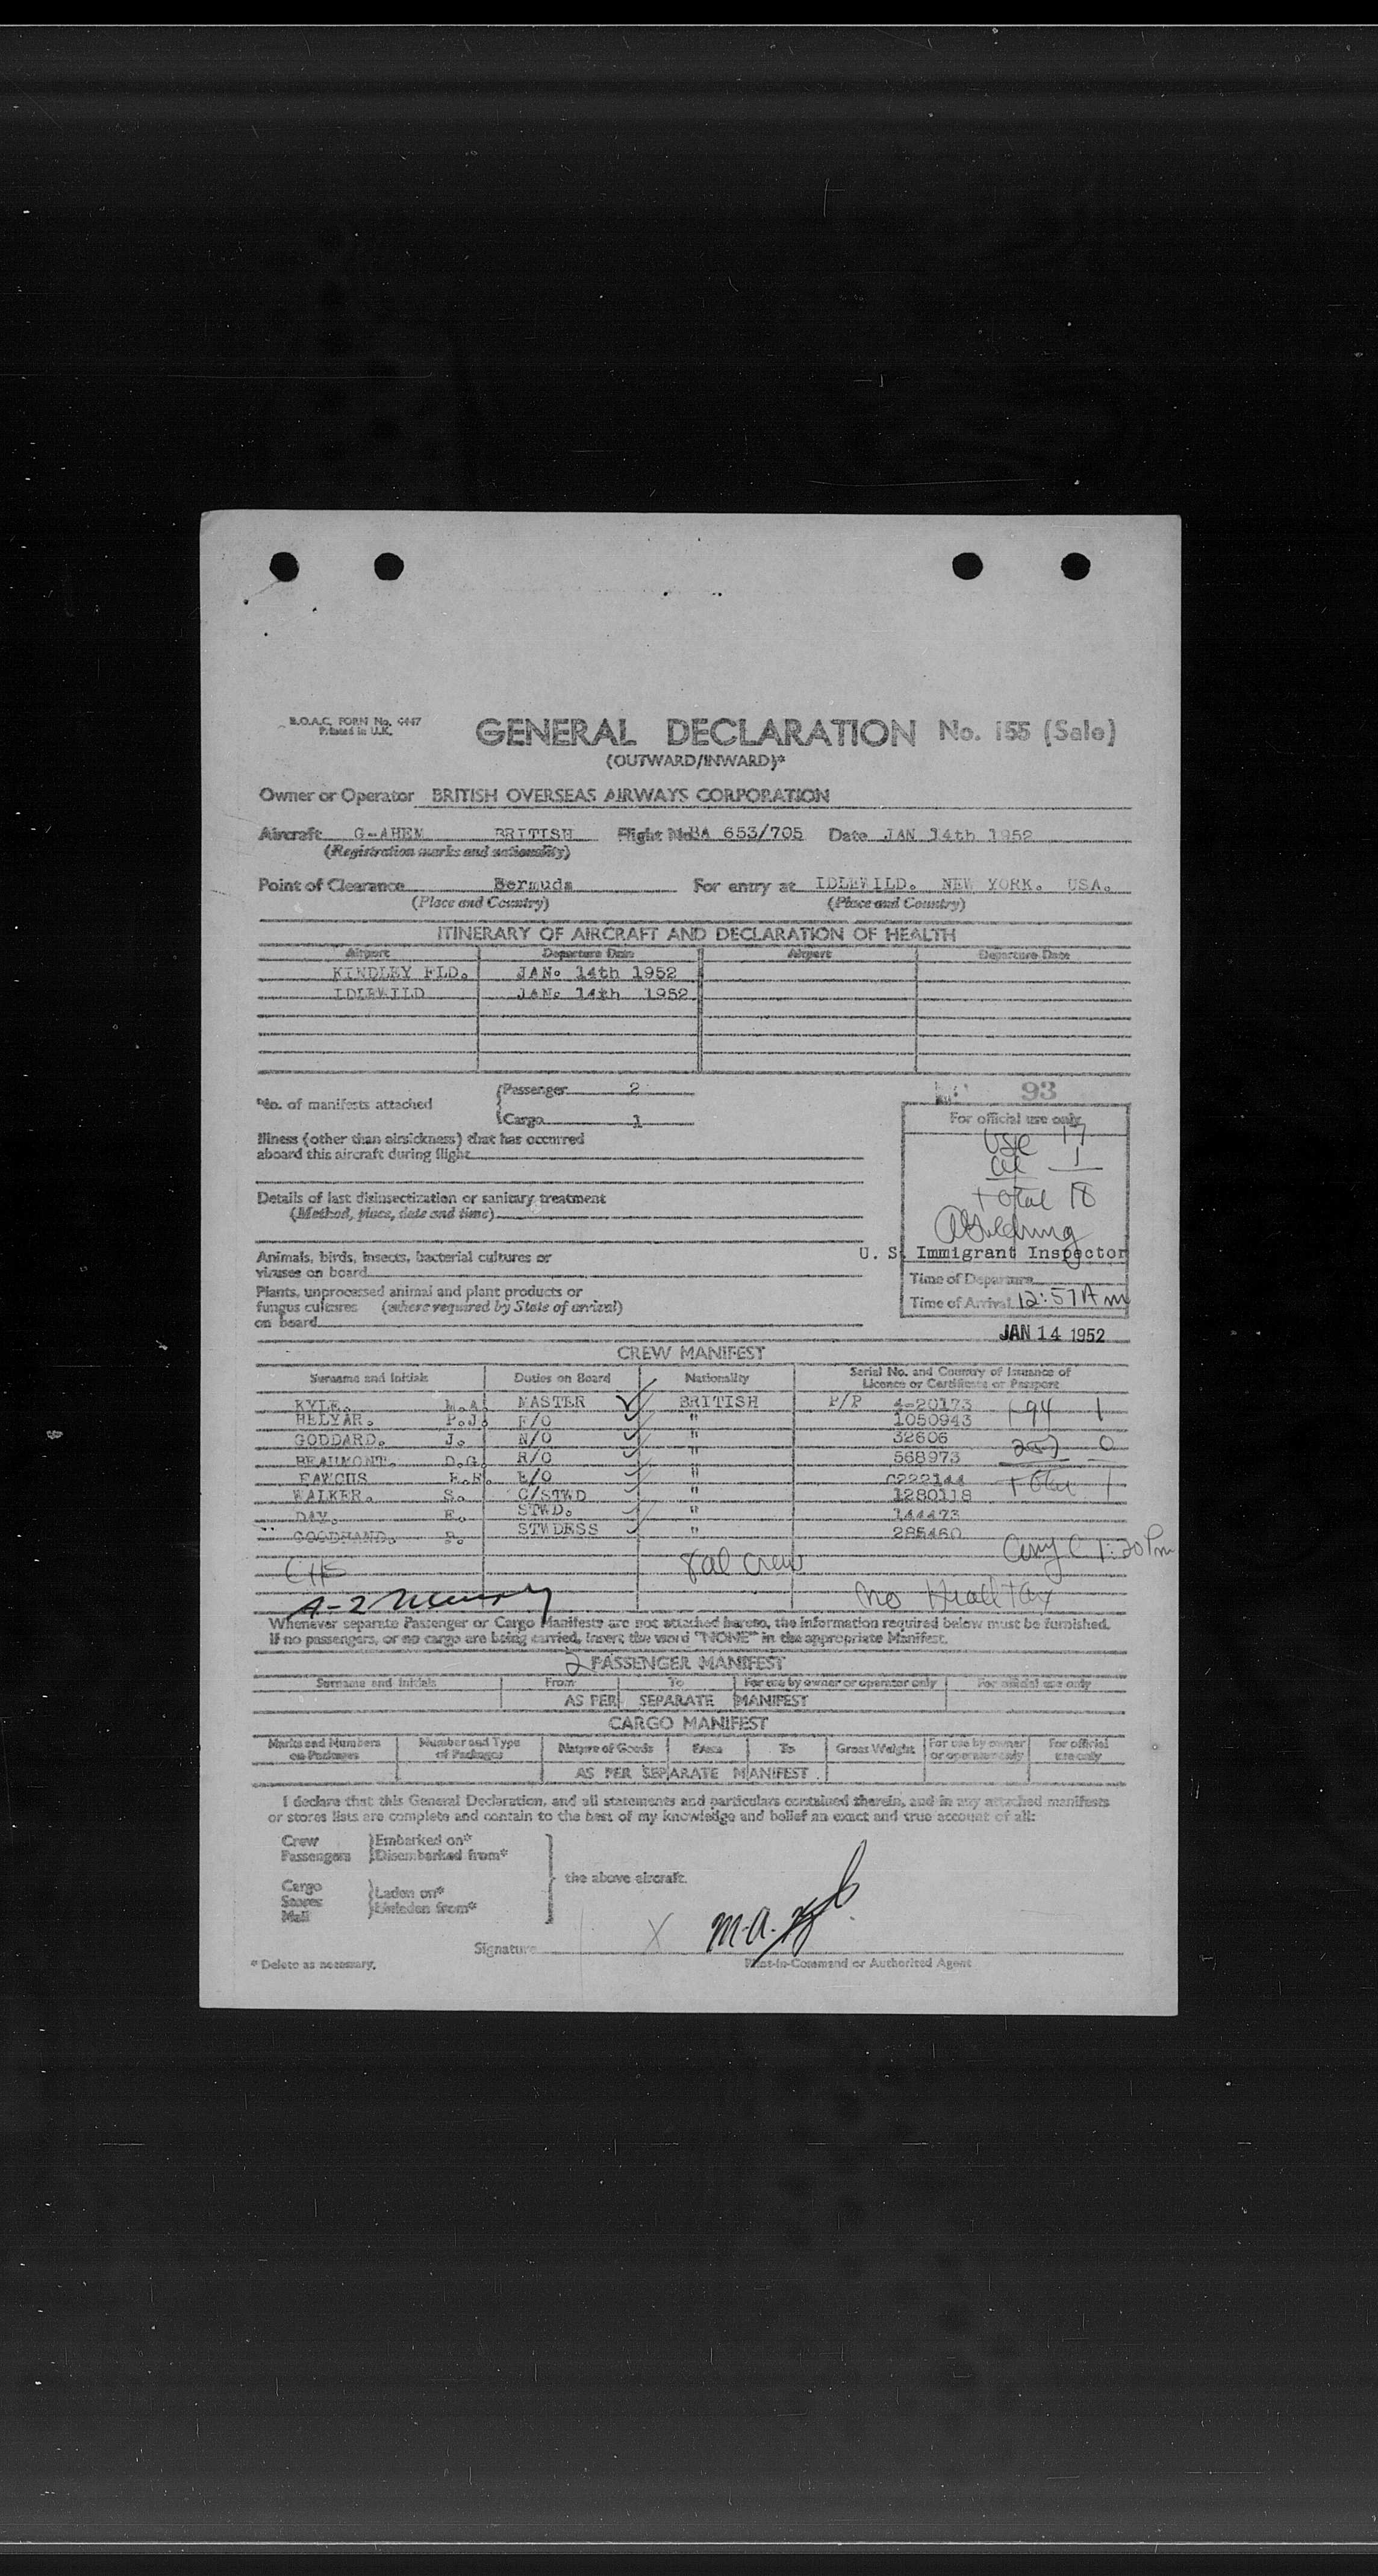 B.O.A.C. FORM No. 4447
Printed in U.K.
GENERAL DECLARATION No. 155 (Sale)
(OUTWARD/INWARD)*
Owner or Operator BRITISH OVERSEAS AIRWAYS CORPORATION
Aircraft G-AHEM BRITISH Flight No. BA 653/705 Date JAN 14th 1952
(Registration marks and nationality)
Point of Clearance Bermuda For entry at IDLEWILD. NEW YORK. USA.
(Place and Country) (Place and Country)
ITINERARY OF AIRCRAFT AND DECLARATION OF HEALTH
Airport Departure Date Airport Departure Date
KINDLEY FLD. JAN. 14th 1952
IDLEWILD JAN. 14th 1952
93
*No. of manifests attached
Passenger 2
Cargo 1
For official use only
USC 17
al 1
total 18
U. S. Immigrant Inspector
Time of Departure
Time of Arrival 12:57 A m
JAN 14 1952
Illness (other than airsickness) that has occurred
aboard this aircraft during flight
Details of last disinsectization or sanitary treatment
(Method, place, date and time)
Animals, birds, insects, bacterial cultures or
viruses on board
Plants, unprocessed animal and plant products or
fungus cultures (where required by State of arrival)
on board
CREW MANIFEST
Surname and Initials Duties on Board Nationality Serial No. and Country of Issuance of
Licence or Certificate or Passport
KYLE. M.A. MASTER BRITISH P/P 4-20173 I 94 1
HELYAR. P.J. F/O " 1050943
GODDARD. J. N/O " 32606 257 0
BEAUMONT. D.G. R/O " 568973
FAWCUS E/O " C222144 total 1
WALKER. S. C/STWD " 1280118
DAY. E. STWD. " 144473
GOODHAND. STWDESS " 285460
1:20 Pm
8 al crew
CHS
A-2 no Head tax
Whenever separate Passenger or Cargo Manifests are not attached hereto, the information required below must be furnished.
If no passengers, or no cargo are being carried, insert the word "NONE" in the appropriate Manifest.
2 PASSENGER MANIFEST
Surname and Initials From To For use by owner or operator only For official use only
AS PER SEPARATE MANIFEST
CARGO MANIFEST
Marks and Numbers on Packages Number and Type of Packages Nature of Goods From To Gross Weight For use by owner or operator only For official use only
AS PER SEPARATE MANIFEST.
I declare that this General Declaration, and all statements and particulars contained therein, and in any attached manifests
or stores lists are complete and contain to the best of my knowledge and belief an exact and true account of all:
Crew Embarked on*
Passengers Disembarked from*
the above aircraft.
Cargo
Stores Laden on*
Mail Unladen from*
Signature X M.A. Kyle
* Delete as necessary. Pilot-in-Command or Authorized Agent